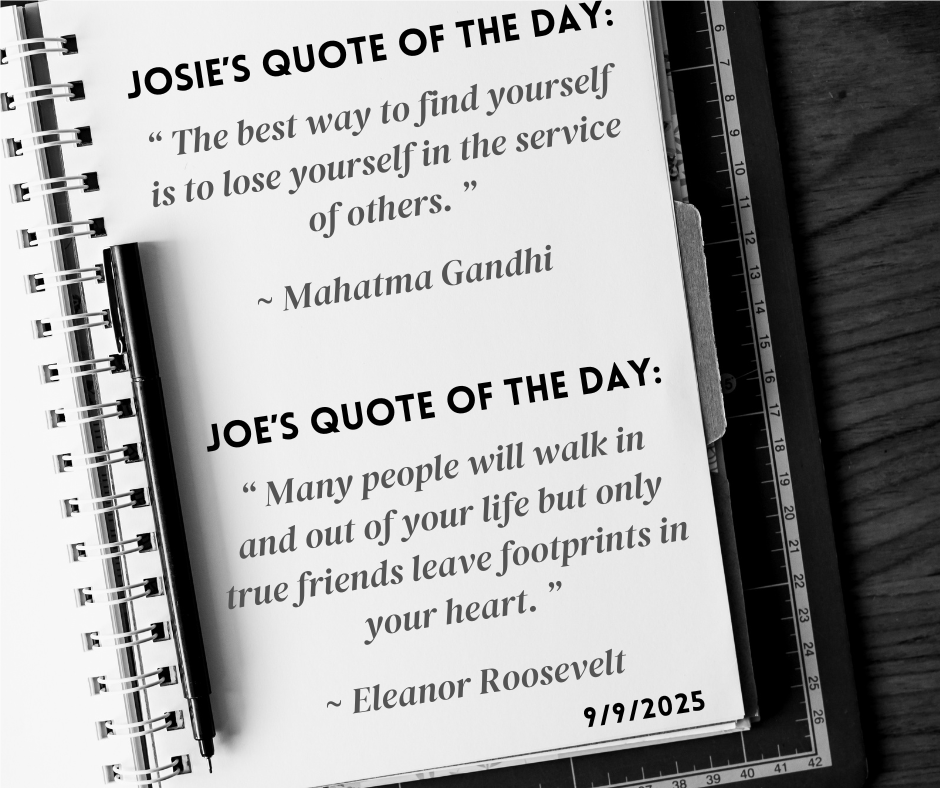 JOSIE'S QUOTE OF THE DAY:
“ The best way to find yourself
is to lose yourself in the service
of others. ”
~ Mahatma Gandhi
JOE'S QUOTE OF THE DAY:
“ Many people will walk in
and out of your life but only
true friends leave footprints in
your heart. ”
~ Eleanor Roosevelt
9/9/2025
6
7
8
9
10
11
12
13
14
15
16
17
18
19
20
21
22
23
24
25
26
37
38
39
40
41
42